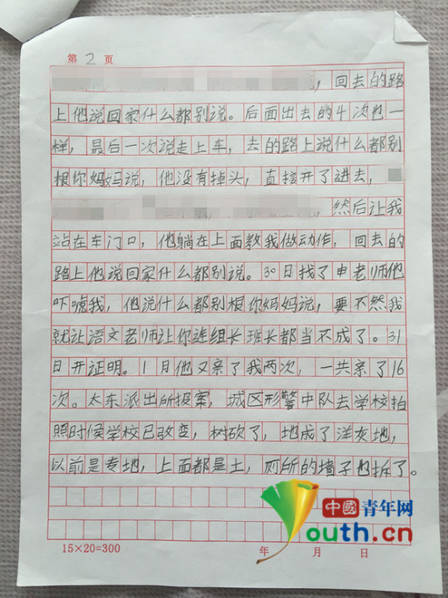 第 2 页
，回去的路
上他说回家什么都别说。后面出去的4次也一
样，最后一次说走上车，去的路上说什么都别
根你妈妈说，他没有掉头，直接开了进去，
，然后让我
站在车门口，他躺在上面教我做动作，回去的
路上他说回家什么都别说。30日找了申老师他
吓唬我，他说什么都别根你妈妈说，要不然我
就让语文老师让你连组长班长都当不成了。31
日开证明。1月他又亲了我两次，一共亲了16
次。太东派出所报案，城区形警中队去学校拍
照时候学校已改变，树砍了，地成了洋灰地，
以前是专地，上面都是土，厕所的墙子也拆了。
中國青年网
Youth.cn
15×20=300 年 月 日